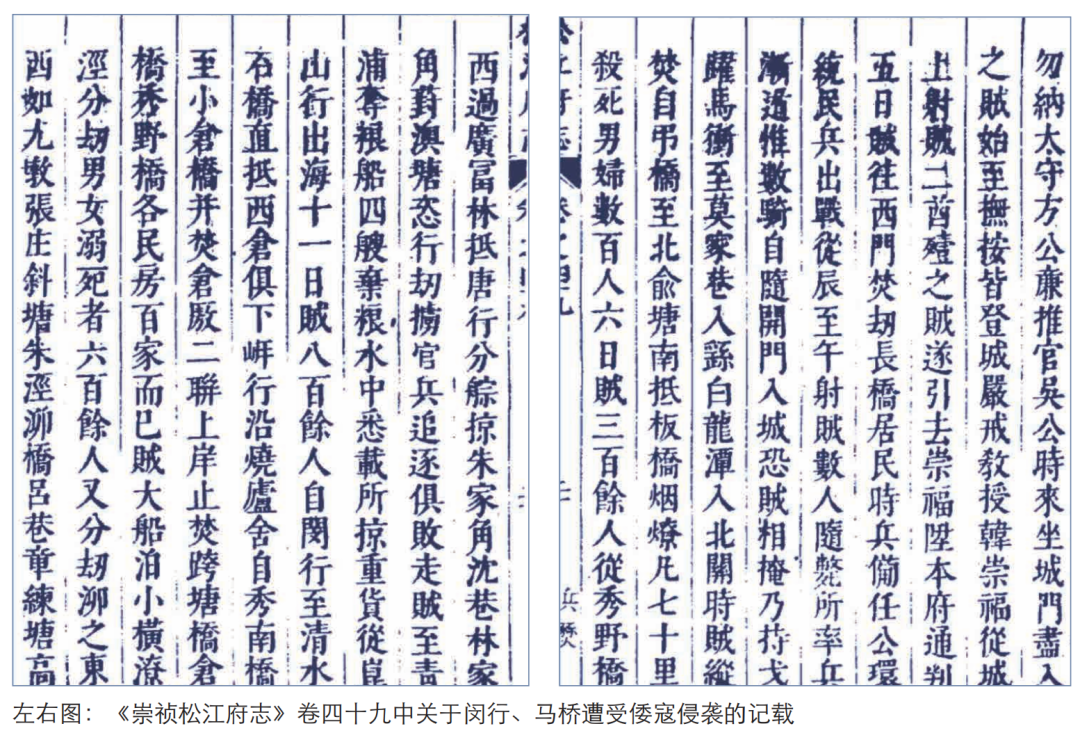 勿納太守方公廉推官吳公時來坐城門盡入
之賊始至撫按皆登城嚴戒敎授韓崇福從城
上射賊二酋殪之賊遂引去崇福陞本府通判
五日賊往西門焚刼長橋居民時兵俻任公環
統民兵出戰從辰至午射賊數人隨斃所率兵
漸遁惟數騎自隨開門入城恐賊相掩乃持戈
躍馬衝至莫家巷入繇白龍潭入北關時賊縱
焚自弔橋至北俞塘南抵板橋烟燎凡七十里
殺死男婦數百人六日賊三百餘人從秀野橋
西過廣富林抵唐行分䑸掠朱家角沈巷林家
角葑澳塘恣行刼擄官兵追逐俱敗走賊至靑
浦奪粮船四艘棄粮水中悉載所掠重貨從崑
山行出海十一日賊八百餘人自閔行至清水
石橋直抵西倉俱下岸行沿燒廬舍自秀南橋
至小倉橋并焚倉厫二聯上岸止焚跨塘橋倉
橋秀野橋各民房百家而巳賊大船泊小橫潦
涇分刼男女溺死者六百餘人又分刼泖之東
西如九墩張庄斜塘朱涇泖橋呂巷章練塘高
左右图：《崇祯松江府志》卷四十九中关于闵行、马桥遭受倭寇侵袭的记载